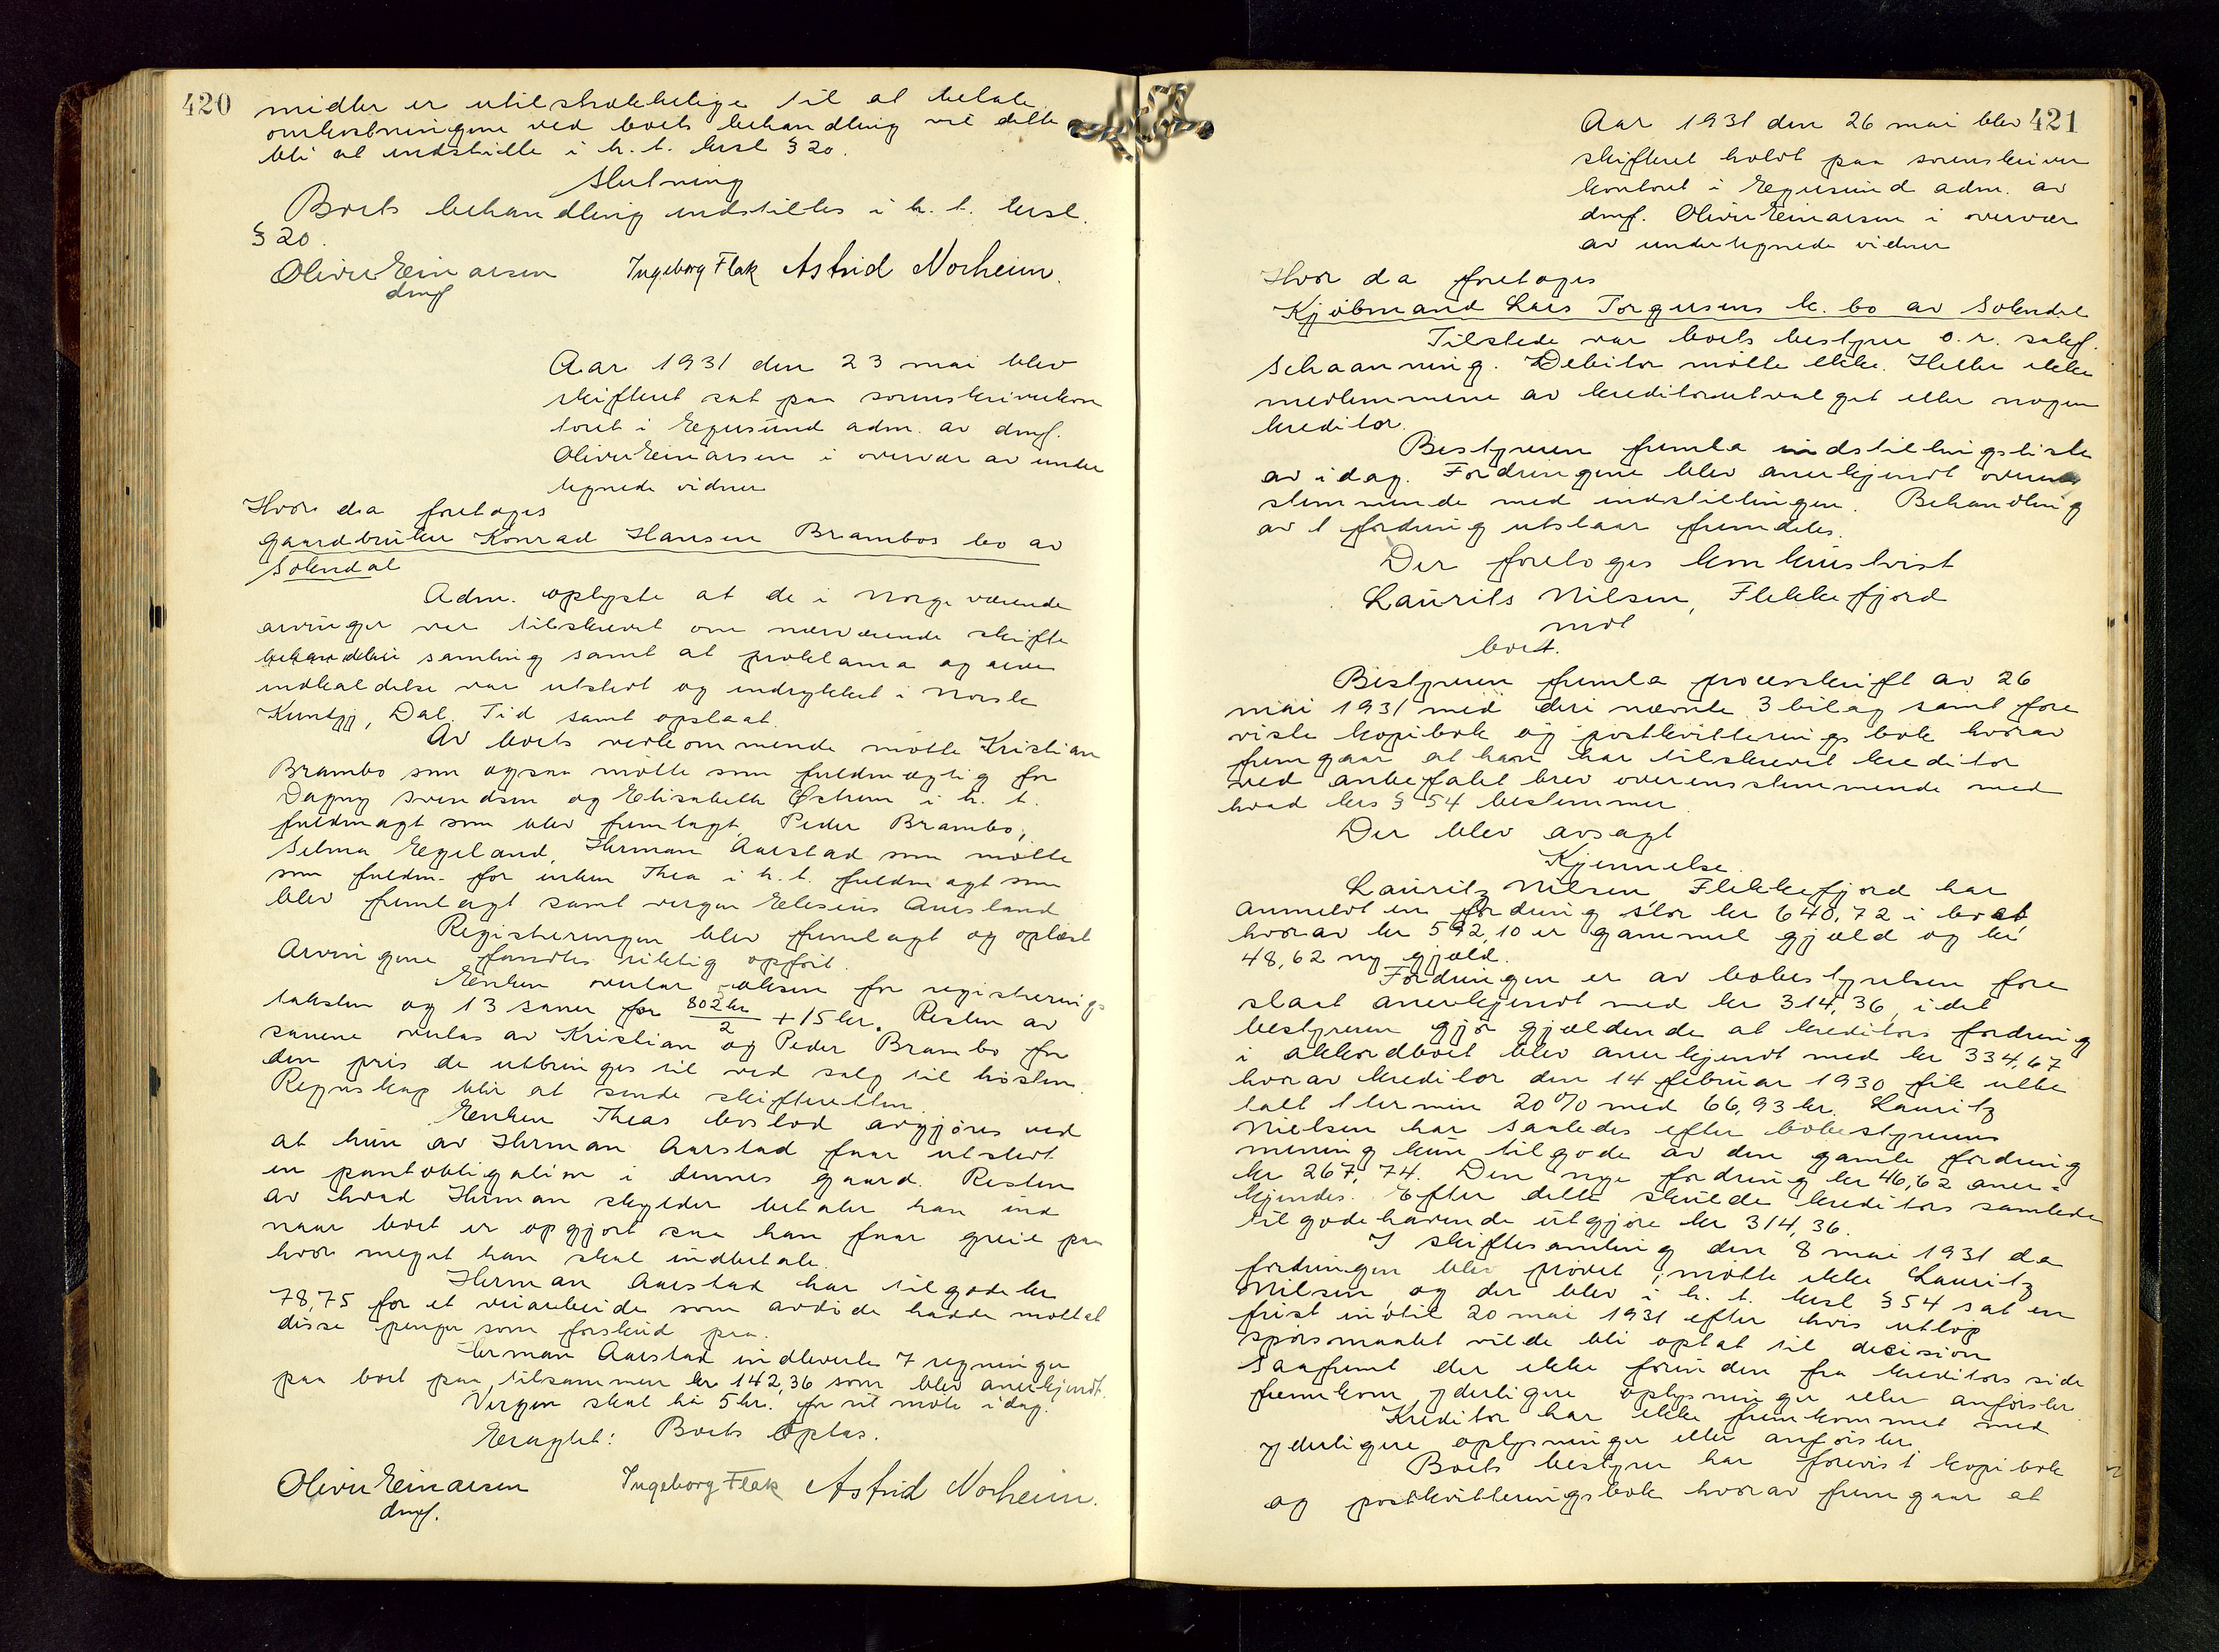 420
midler er utilstrækkelige til at betale
omkostningene ved boets behandling vil dette
bli at indstille i h. t. kksl § 20.
Slutning
Boets behandling indstilles i h. t. kksl.
§ 20.
Oliver Einarsen Ingeborg Flak Astrid Norheim.
dmf
Aar 1931 den 23 mai blev
skifteret sat paa sorenskriverkon
toret i Egersund adm. av dmf.
Oliver Einarsen i overvær av under
tegnede vidner
Hvor da foretoges
gaardbruker Konrad Hansen Brambos bo av
Sokndal
Adm. oplyste at de i Norge værende
arvinger var tilskrevet om nærværende skifte
samling samt at proklama og arve
indkaldelse var utstedt og indrykket i Norsk
Kuntgj, Dal. Tid samt opslaat.
Av boets vedkommende møtte Kristian
Brambo som ogsaa møtte som fuldmægtig for
Dagny Svendsen og Elisabeth Østrem i h. t.
fuldmagt som blev fremlagt, Peder Brambo,
Selma Egeland, Herman Aarstad som møtte
som fuldm. for enken Thea i h. t. fuldmagt som
blev fremlagt samt vergen Elesius Aarsland
Registreringen blev fremlagt og oplæst
Arvingene fandtes riktig opført.
Enken overtar oksen for registrerings
taksten og 13 sauer for 802 kr/2 + 15 kr. Resten av
sauene overtas av Kristian og Peder Brambo for
den pris de utbringes til ved salg til høsten.
Regnskap blir at sende skifteretten.
Enken Theas boslod avgjøres ved
at hun av Herman Aarstad faar utstedt
en pantobligation i dennes gaard. Resten
av hvad Herman skylder betaler han ind
naar boet er opgjort saa han faar greie paa
hvor meget han skal indbetale.
Herman Aarstad har tilgode kr
78,75 for et veiarbeide som avdøde hadde mottat
disse penger som forskud paa.
Herman Aarstad indleverte 7 regninger
paa boet paa tilsammen kr 142,36 som blev anerkjendt.
Vergen skal ha 5 kr. for sit møte idag.
Eragtet: Boets optas.
Oliver Einarsen Ingeborg Flak Astrid Norheim.
dmf.
421
Aar 1931 den 26 mai blev
skifteret holdt paa sorenskriver
kontoret i Egersund adm. av
dmf. Oliver Einarsen i overvær
av undertegnede vidner
Hvor da foretoges
Kjøbmand Lars Torgersens k. bo av Sokndal
Tilstede var boets bestyrer o.r. sakf.
Schaanning. Debitor møtte ikke. Heller ikke
medlemmene av kreditorutvalget eller nogen
kreditor.
Bestyreren fremla indstillingsliste
av idag. Fordringene blev anerkjendt overens
stemmende med indstillingen. Behandling
av 1 fordring utstaar fremdeles.
Der foretoges konkurstvist
Laurits Nilsen, Flekkefjord
mot
boet.
Bestyreren fremla processkrift av 26
mai 1931 med deri nævnte 3 bilag samt fore
viste kopibok og postkvitteringsbok hvorav
fremgaar at han har tilskrevet kreditor
ved anbefalet brev overensstemmende med
hvad kks § 54 bestemmer.
Der blev avsagt
Kjennelse.
Lauritz Nilsen Flekkefjord har
anmeldt en fordring stor kr 640,72 i boet
hvorav kr 592,10 er gammel gjæld og kr
48,62 ny gjæld.
Fordringen er av bobestyrelsen fore
slaat anerkjendt med kr 314,36, idet
bestyreren gjør gjældende at kreditors fordring
i akkordboet blev anerkjendt med kr 334,67
hvorav kreditor den 14 februar 1930 fik utbe
talt 1 termin 20% med 66,93 kr. Lauritz
Nielsen har saaledes efter bobestyrerens
mening kun tilgode av den gamle fordring
kr 267,74. Den nye fordring kr 46,62 aner-
kjendes. Efter dette skulde kreditors samlede
tilgodehavende utgjøre kr 314,36.
I skiftesamling den 8 mai 1931 da
fordringen blev prøvet, møtte ikke Lauritz
Nilsen, og der blev i h. t. kksl. § 54 sat en
frist indtil 20 mai 1931 efter hvis utløp
spørsmaalet vilde bli optat til decision
saafremt der ikke forinden fra kreditors side
fremkom yderligere oplysninger eller anførsler.
Kreditor har ikke fremkommet med
yderligere oplysninger eller anførsler.
Boets bestyrer har forevist kopibok
og postkvitteringsbok hvorav fremgaar at